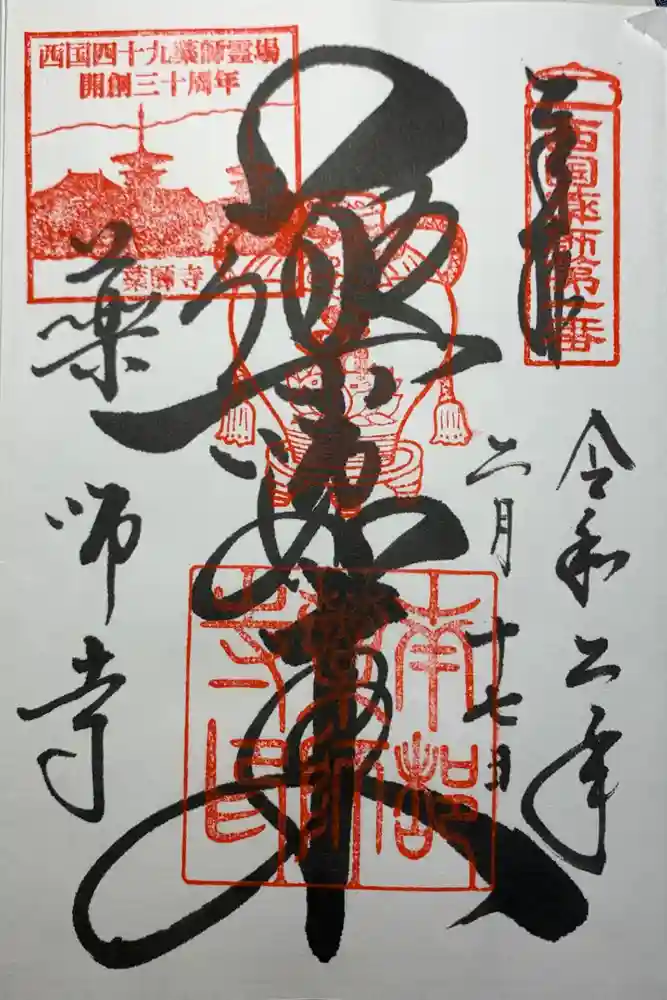 奉拝
西国薬師第一番
令和二年
二月十七日
薬師如来
南都
薬師
寺印
西国四十九薬師霊場
開創三十周年
薬師寺
薬師寺